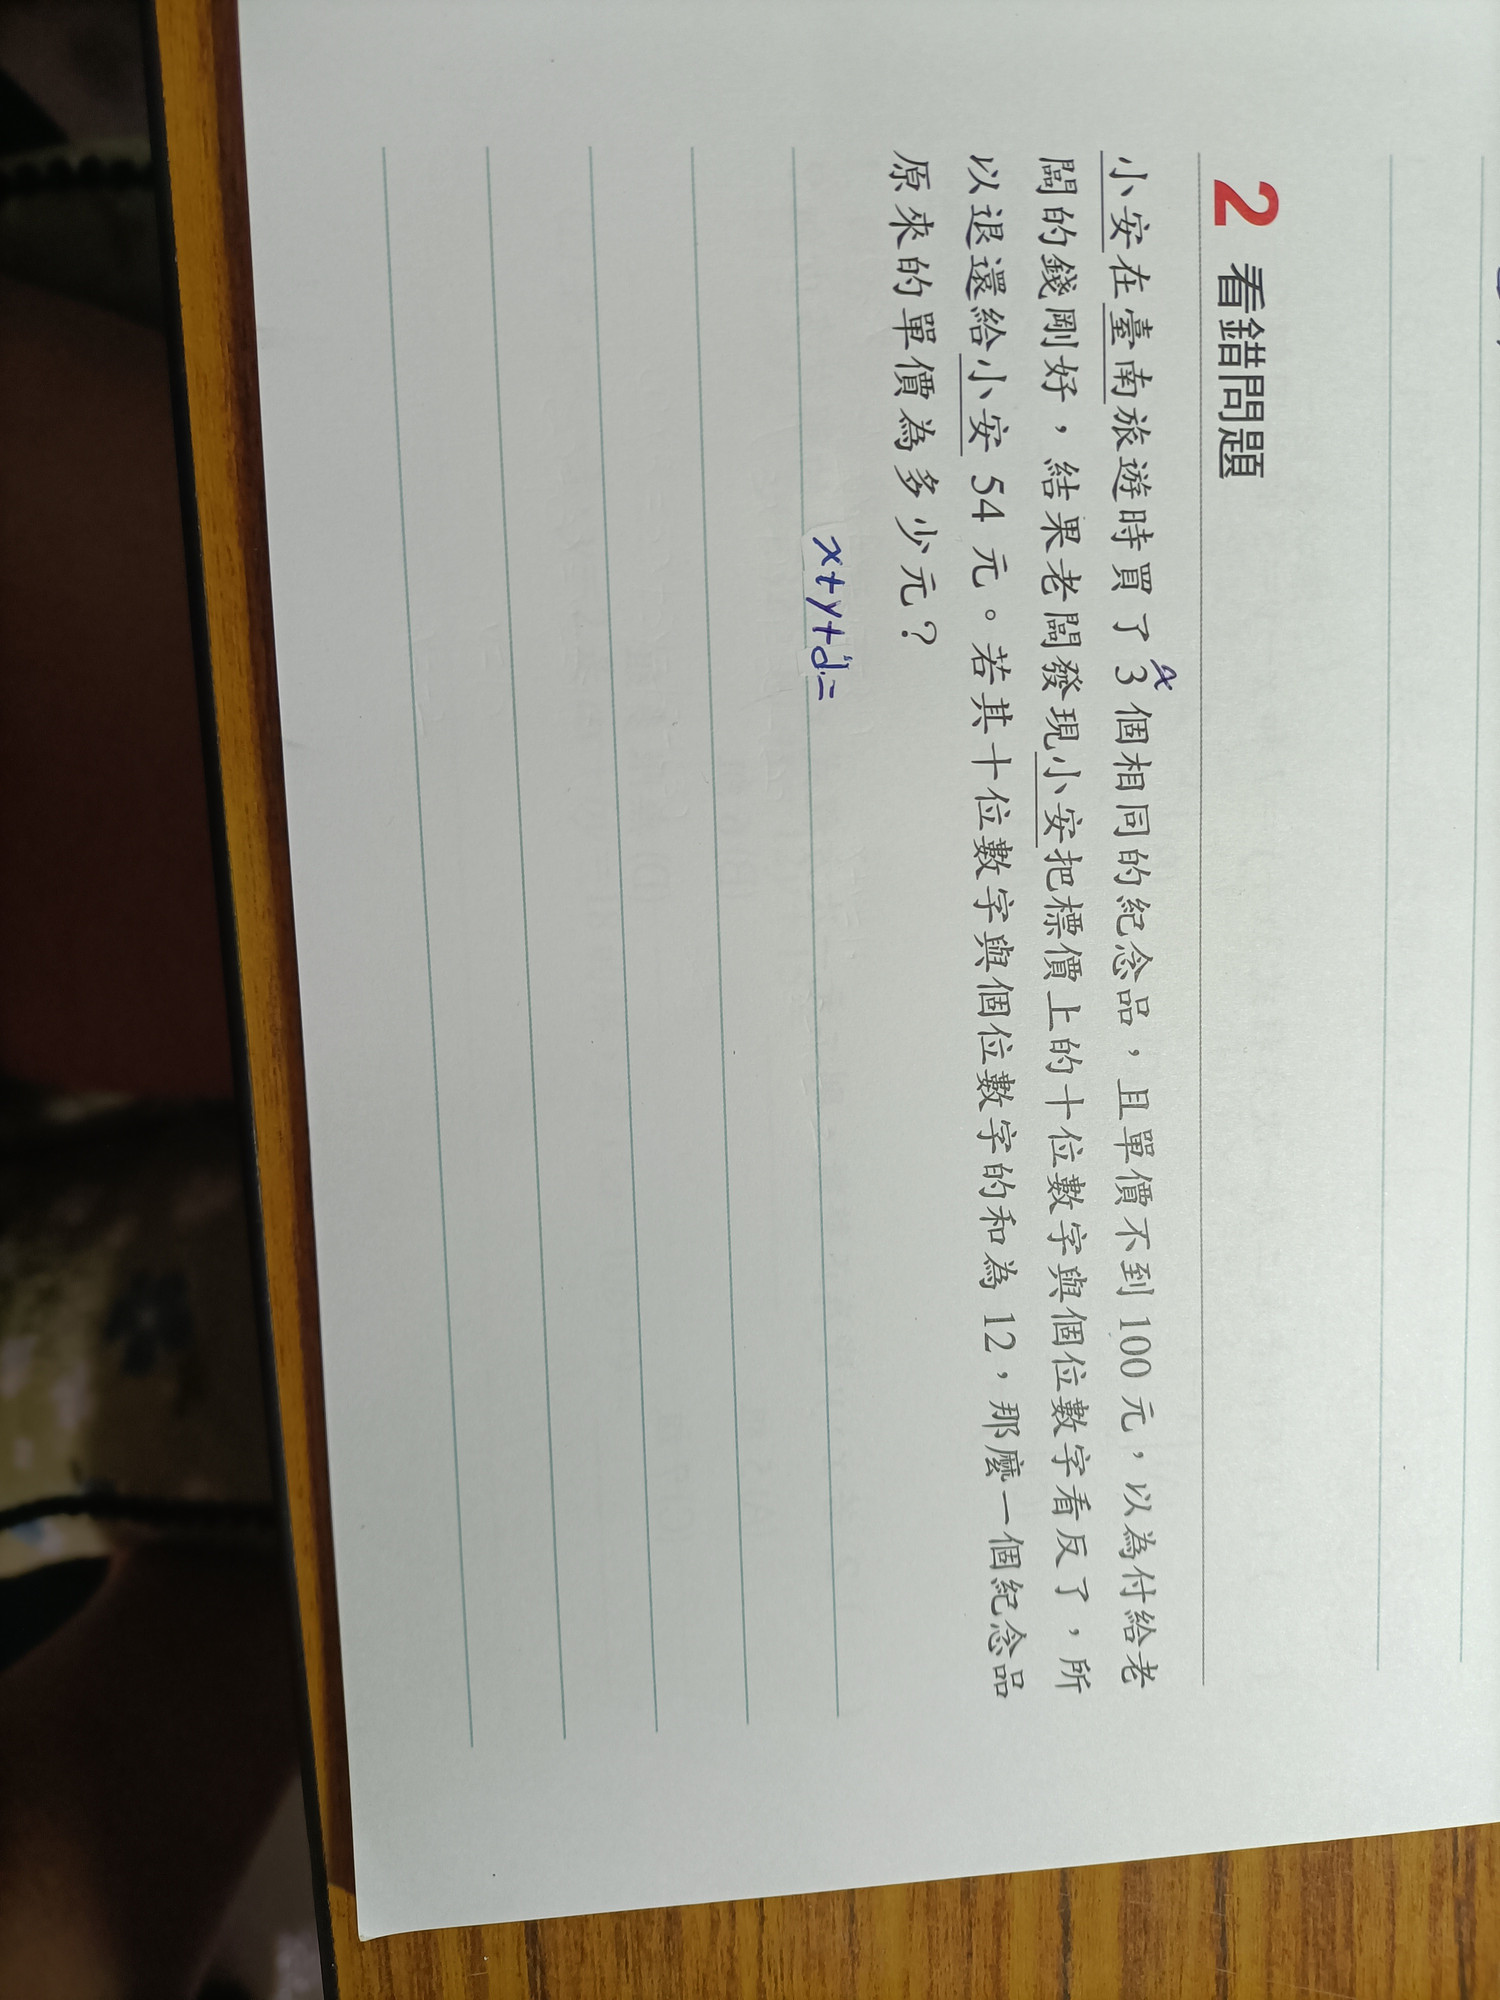 2 看錯問題
小安在臺南旅遊時買了 3 個相同的紀念品，且單價不到 100 元，以為付給老
闆的錢剛好，結果老闆發現小安把標價上的十位數字與個位數字看反了，所
以退還給小安 54 元。若其十位數字與個位數字的和為 12，那麼一個紀念品
原來的單價為多少元？
x+y+d=